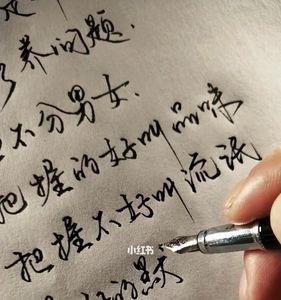 养问题.
不分男女.
把握的好叫品味
把握不好叫流氓
的默
小红书